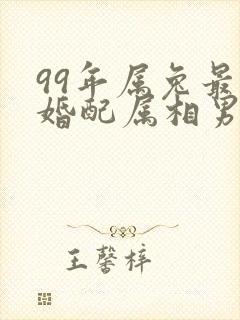 99年属兔最
婚配属相男
王馨梓